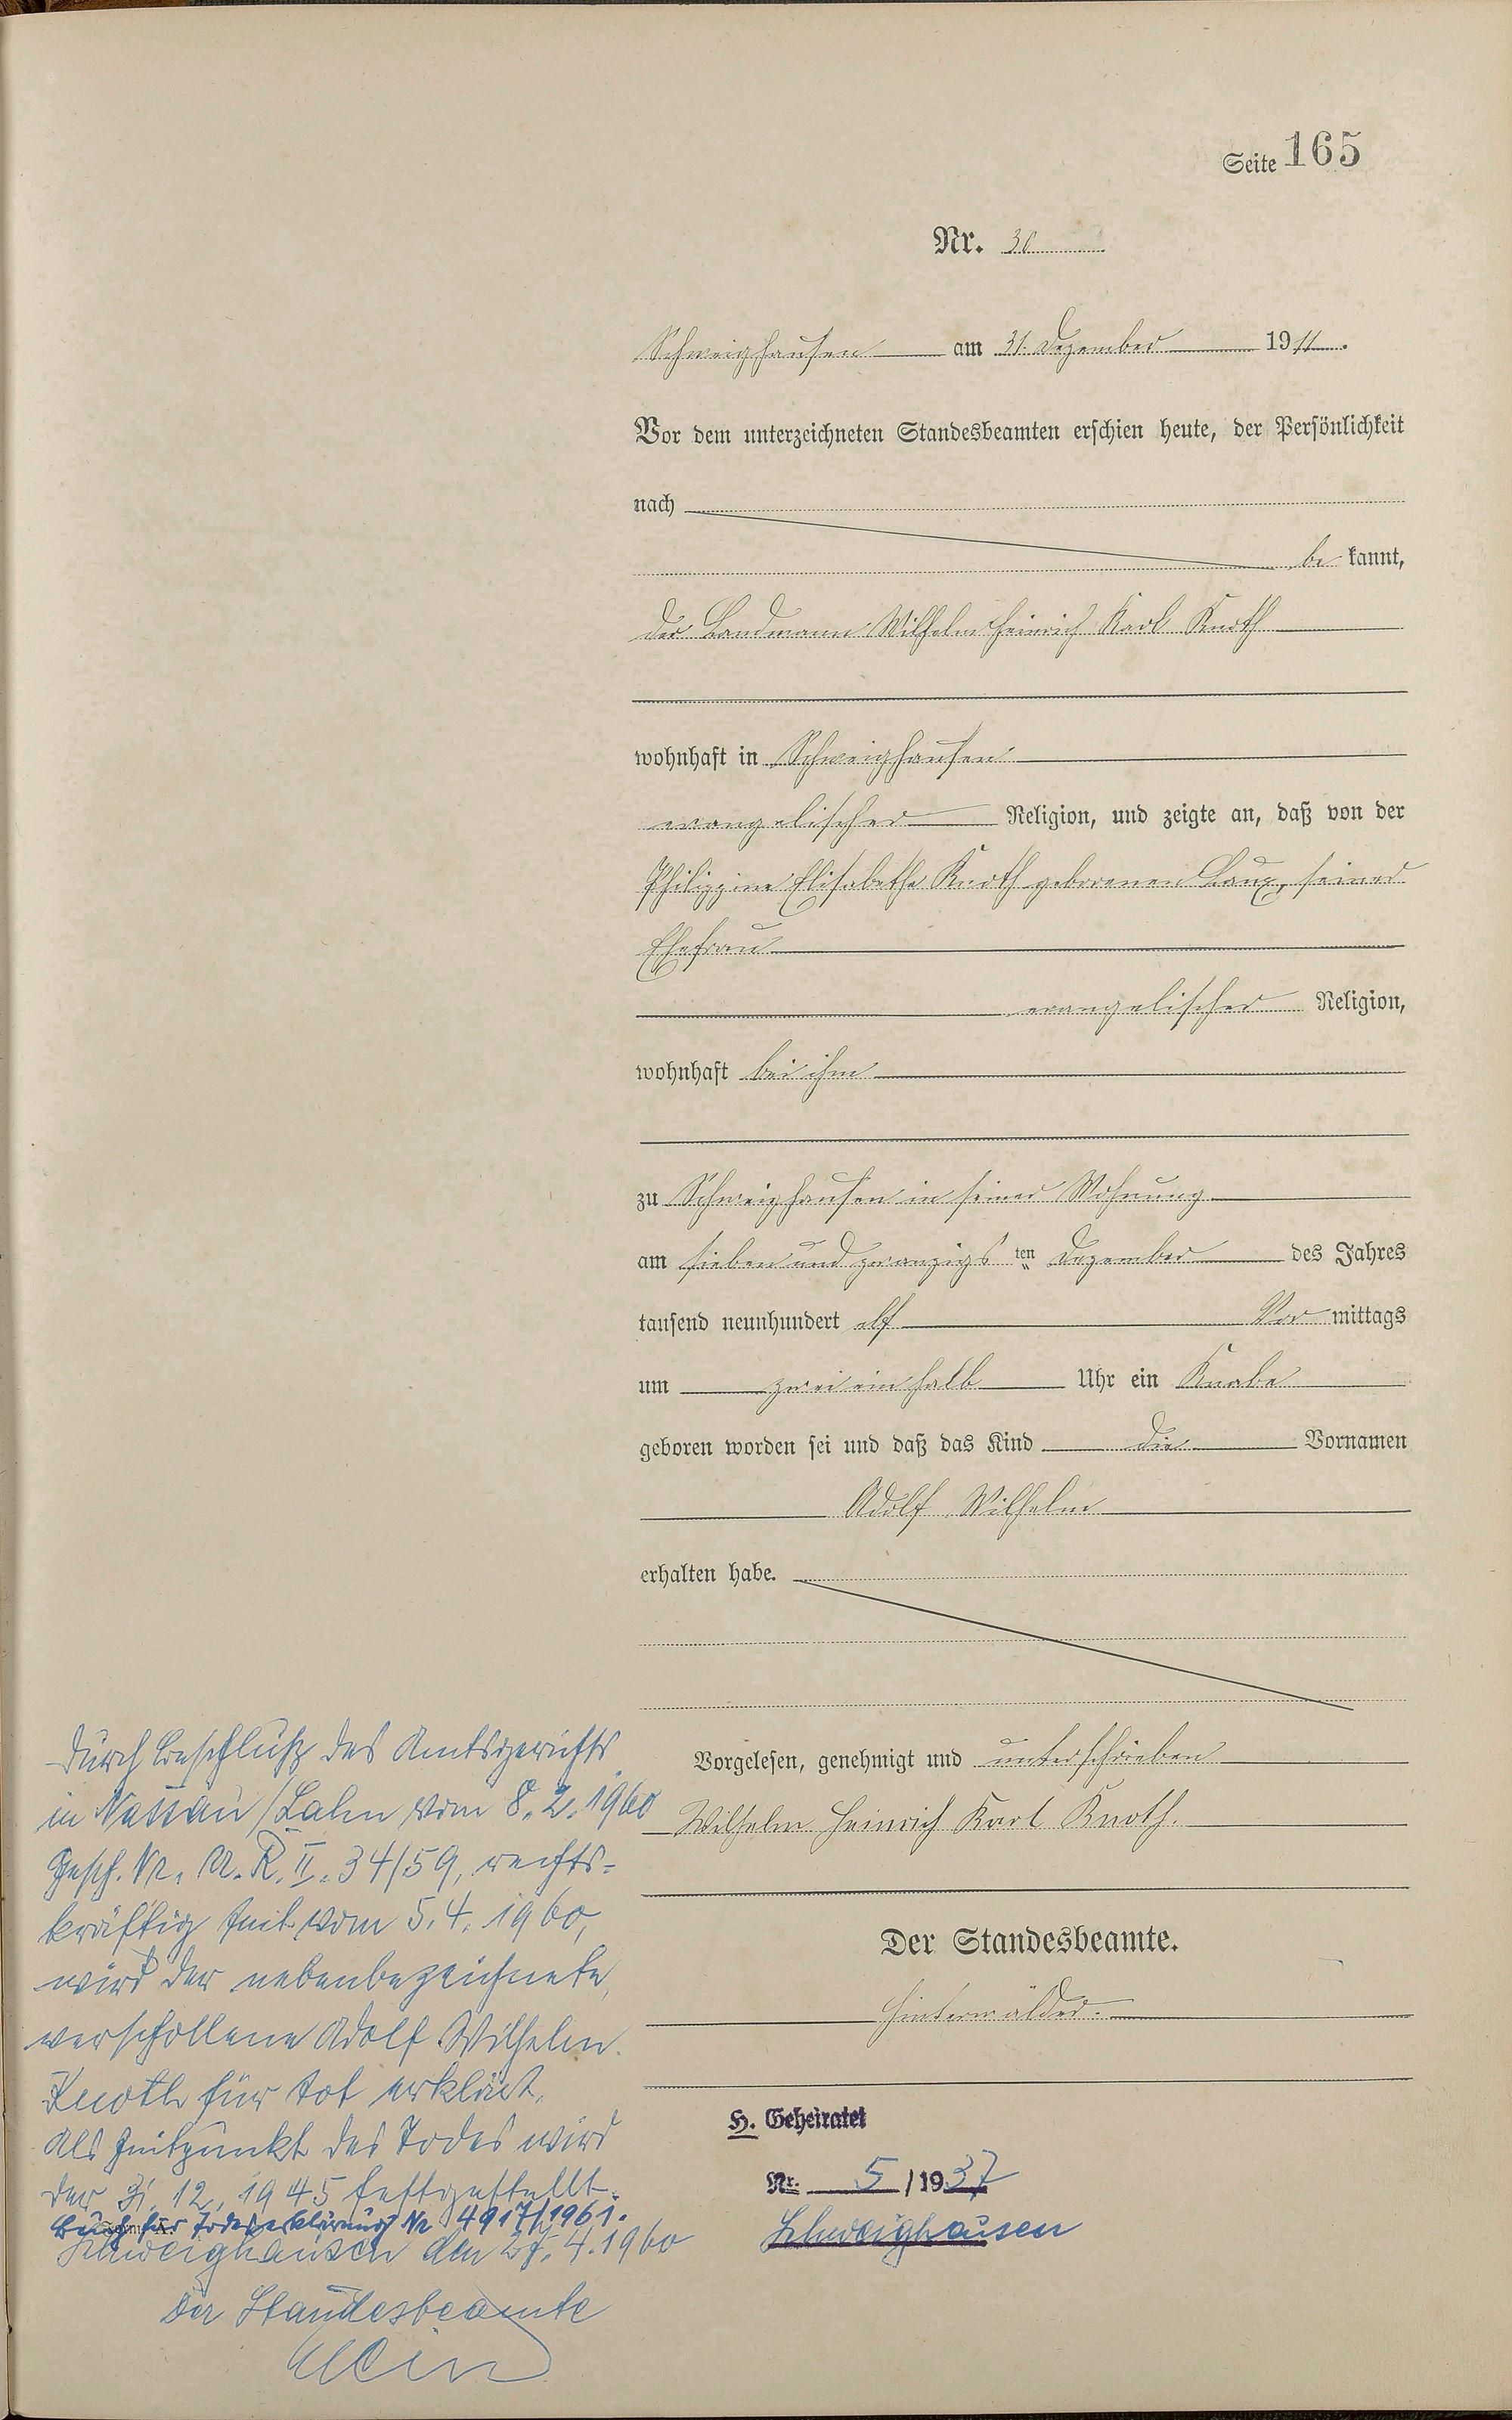 Seite 165
Nr. 30
Schweighausen am 31. Dezember 1911.
Vor dem unterzeichneten Standesbeamten erschien heute, der Persönlichkeit
nach
be kannt,
der Landmann Wilhelm Heinrich Karl Knoth
wohnhaft in Schweighausen
evangelischer Religion, und zeigte an, daß von der
Philippine Elisabethe Knoth geborenen Laux, seiner
Ehefrau
evangelischer Religion,
wohnhaft bei ihm
zu Schweighausen in seiner Wohnung
am sieben und zwanzigs ten Dezember des Jahres
tausend neunhundert elf Vor mittags
um zwei ein halb Uhr ein Knabe
geboren worden sei und daß das Kind die Vornamen
Adolf Wilhelm
erhalten habe.
Vorgelesen, genehmigt und unterschrieben
Wilhelm Heinrich Karl Knoth.
Der Standesbeamte.
Hinterwälder.
H. Geheiratet
Nr. 5/1937
Schweighausen
Durch Beschluß des Amtsgerichts
in Nassau/Lahn vom 8.2.1960
Gesch. Nr. U.R. II. 34/59, rechts=
kräftig seit vom 5.4.1960,
wird der nebenbezeichnete,
verschollene Adolf Wilhelm
Knoth für tot erklärt.
Als Zeitpunkt des Todes wird
der 31.12.1945 festgestellt.
Buch für Todeserklärung Nr 4917/1961.
Schweighausen den 4.1960
Der Standesbeamte